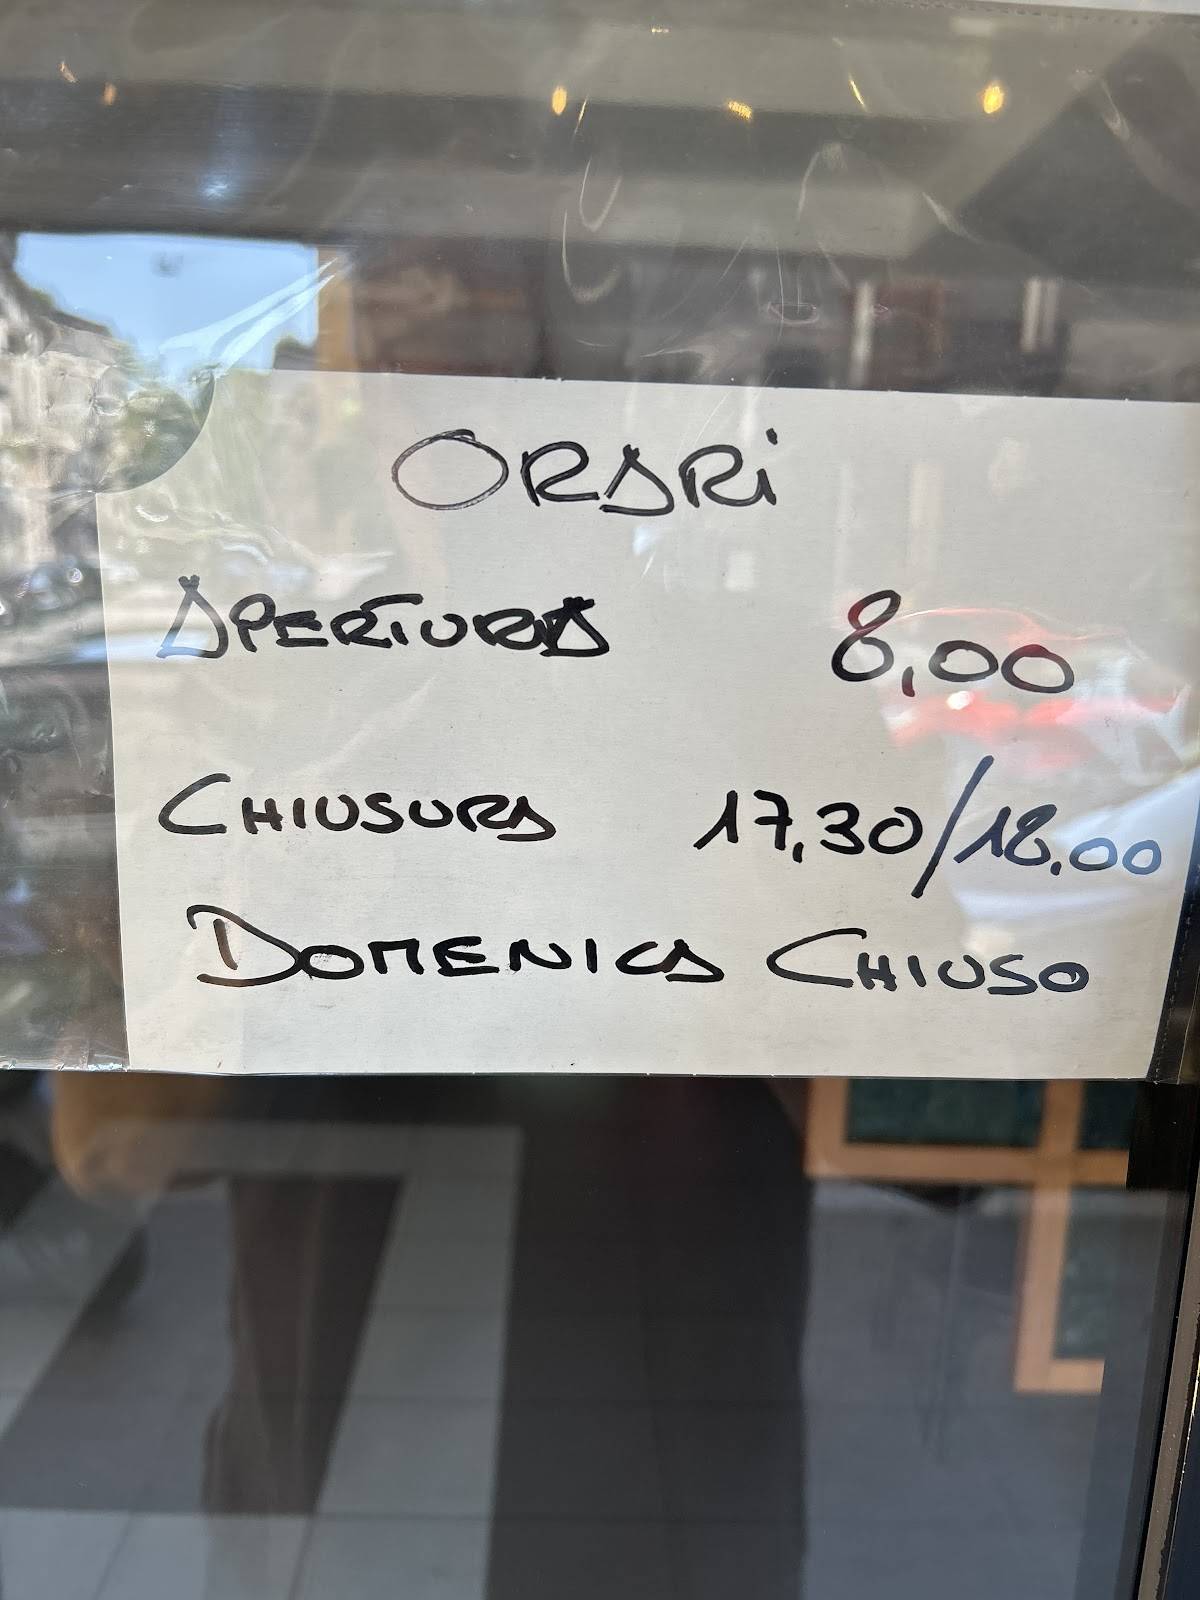 ORARi
APERTURA 8,00
CHIUSURA 17,30/18,00
DOMENICA CHIUSO